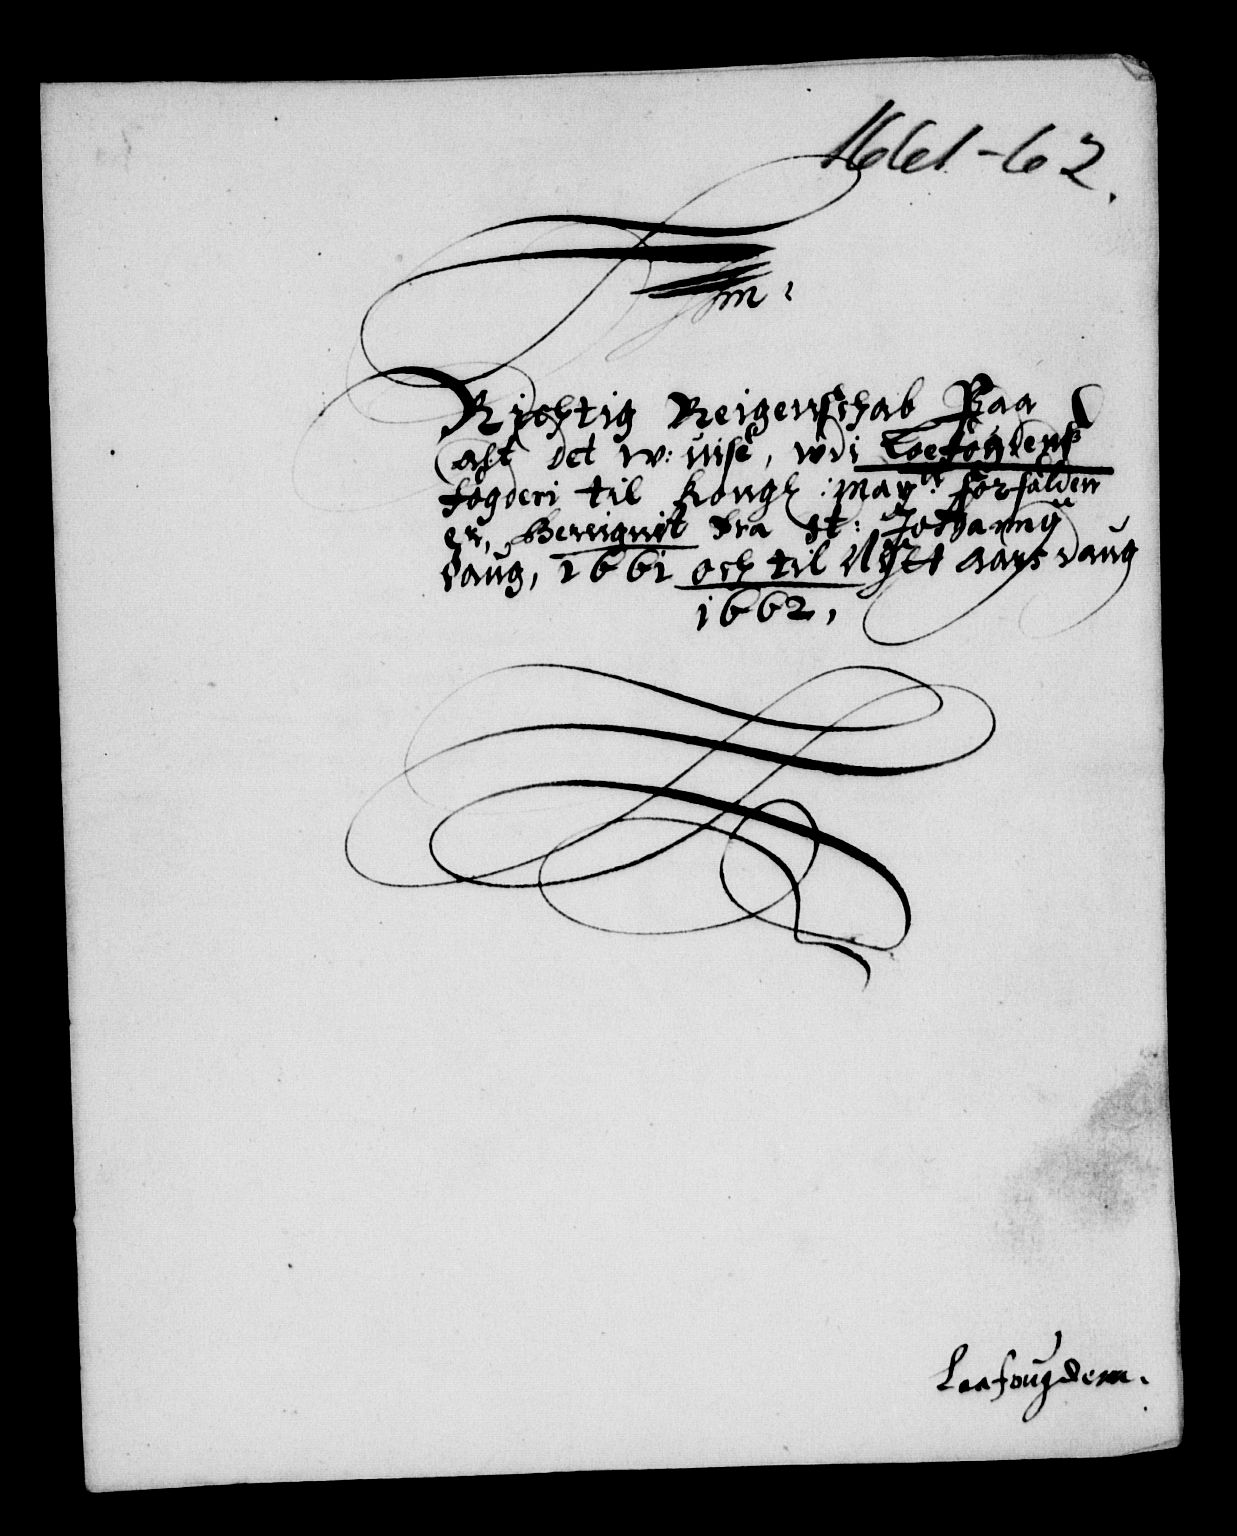 1661-62.
Richtig Reigenschab Paa
alt det w: uise, wdi Loefogdens
fogderi til Kongl: may:tt forfalden
er, Bereignit fra St: Johannij
daug, 1661 och til Nytt aars daug
1662,
Laafougden.